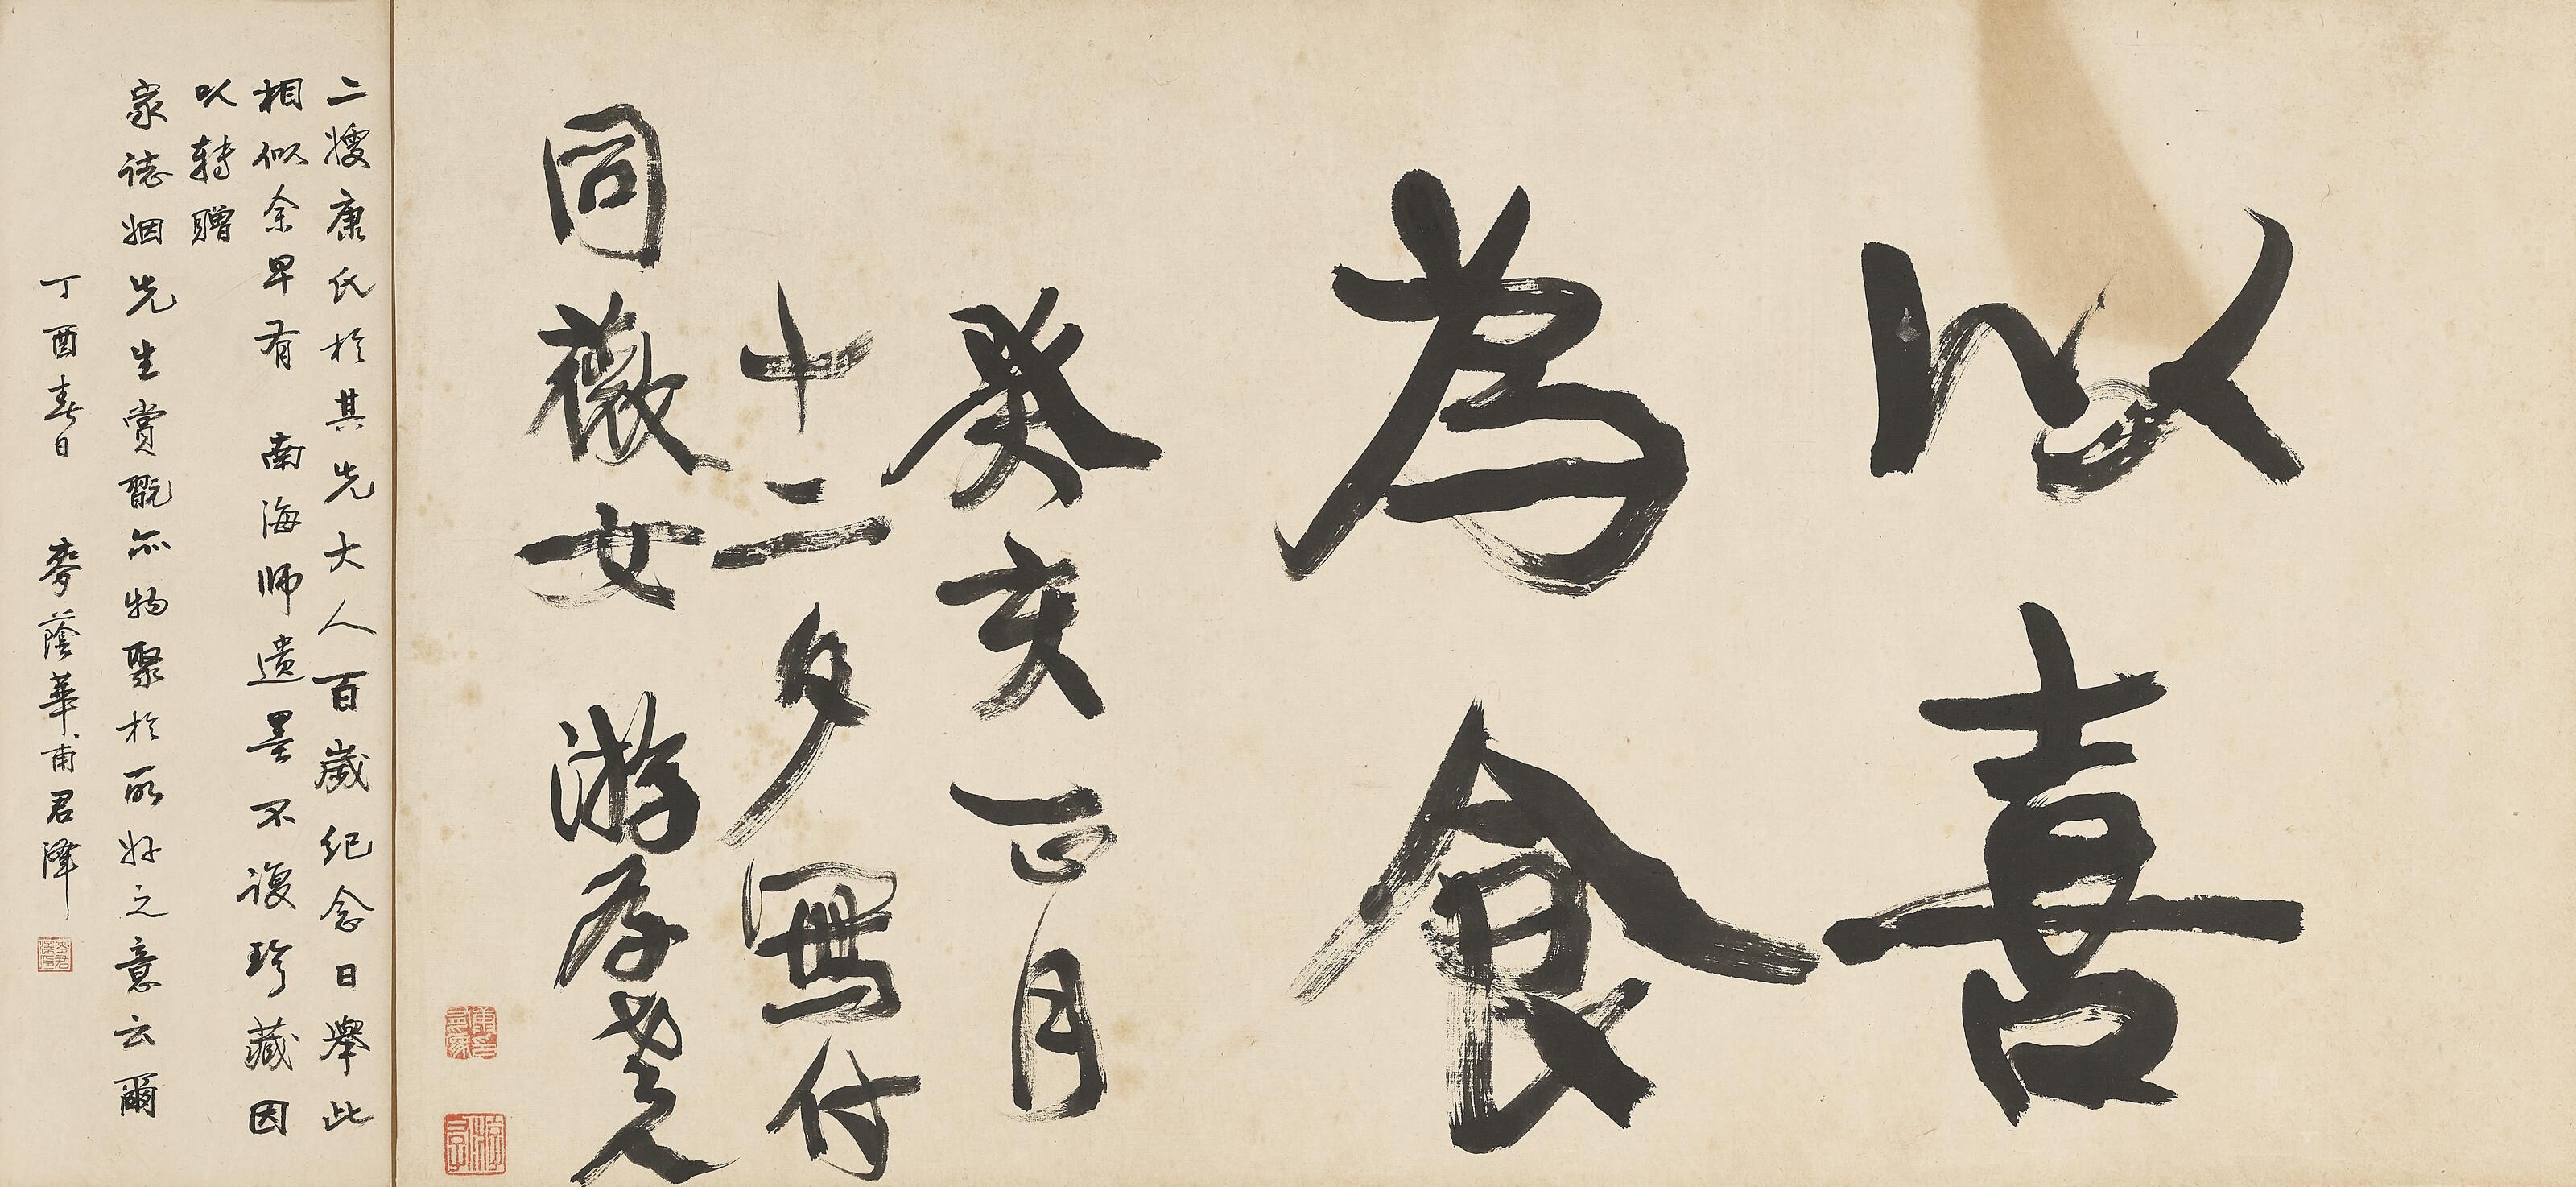 以喜
為食
癸亥正月
十二夕寫付
同薇女 游存老人
二嫂康氏於其先大人百歲紀念日舉此
相似余早有 南海师遺墨不復珍藏因
以轉贈
家誌姻先生賞翫亦物聚於所好之意云爾
丁酉春日 麥蔭華甫君澤